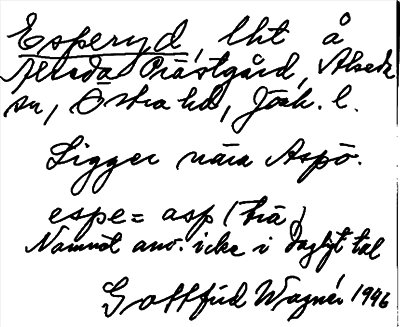 Esperyd, lht å
Alseda Prästgård, Alseda
sn, Östra hd, Jönk. l.
Ligger nära Aspö.
espe = asp (trä)
Namnet anv. icke i dagligt tal
Gottfrid Wagnér 1946